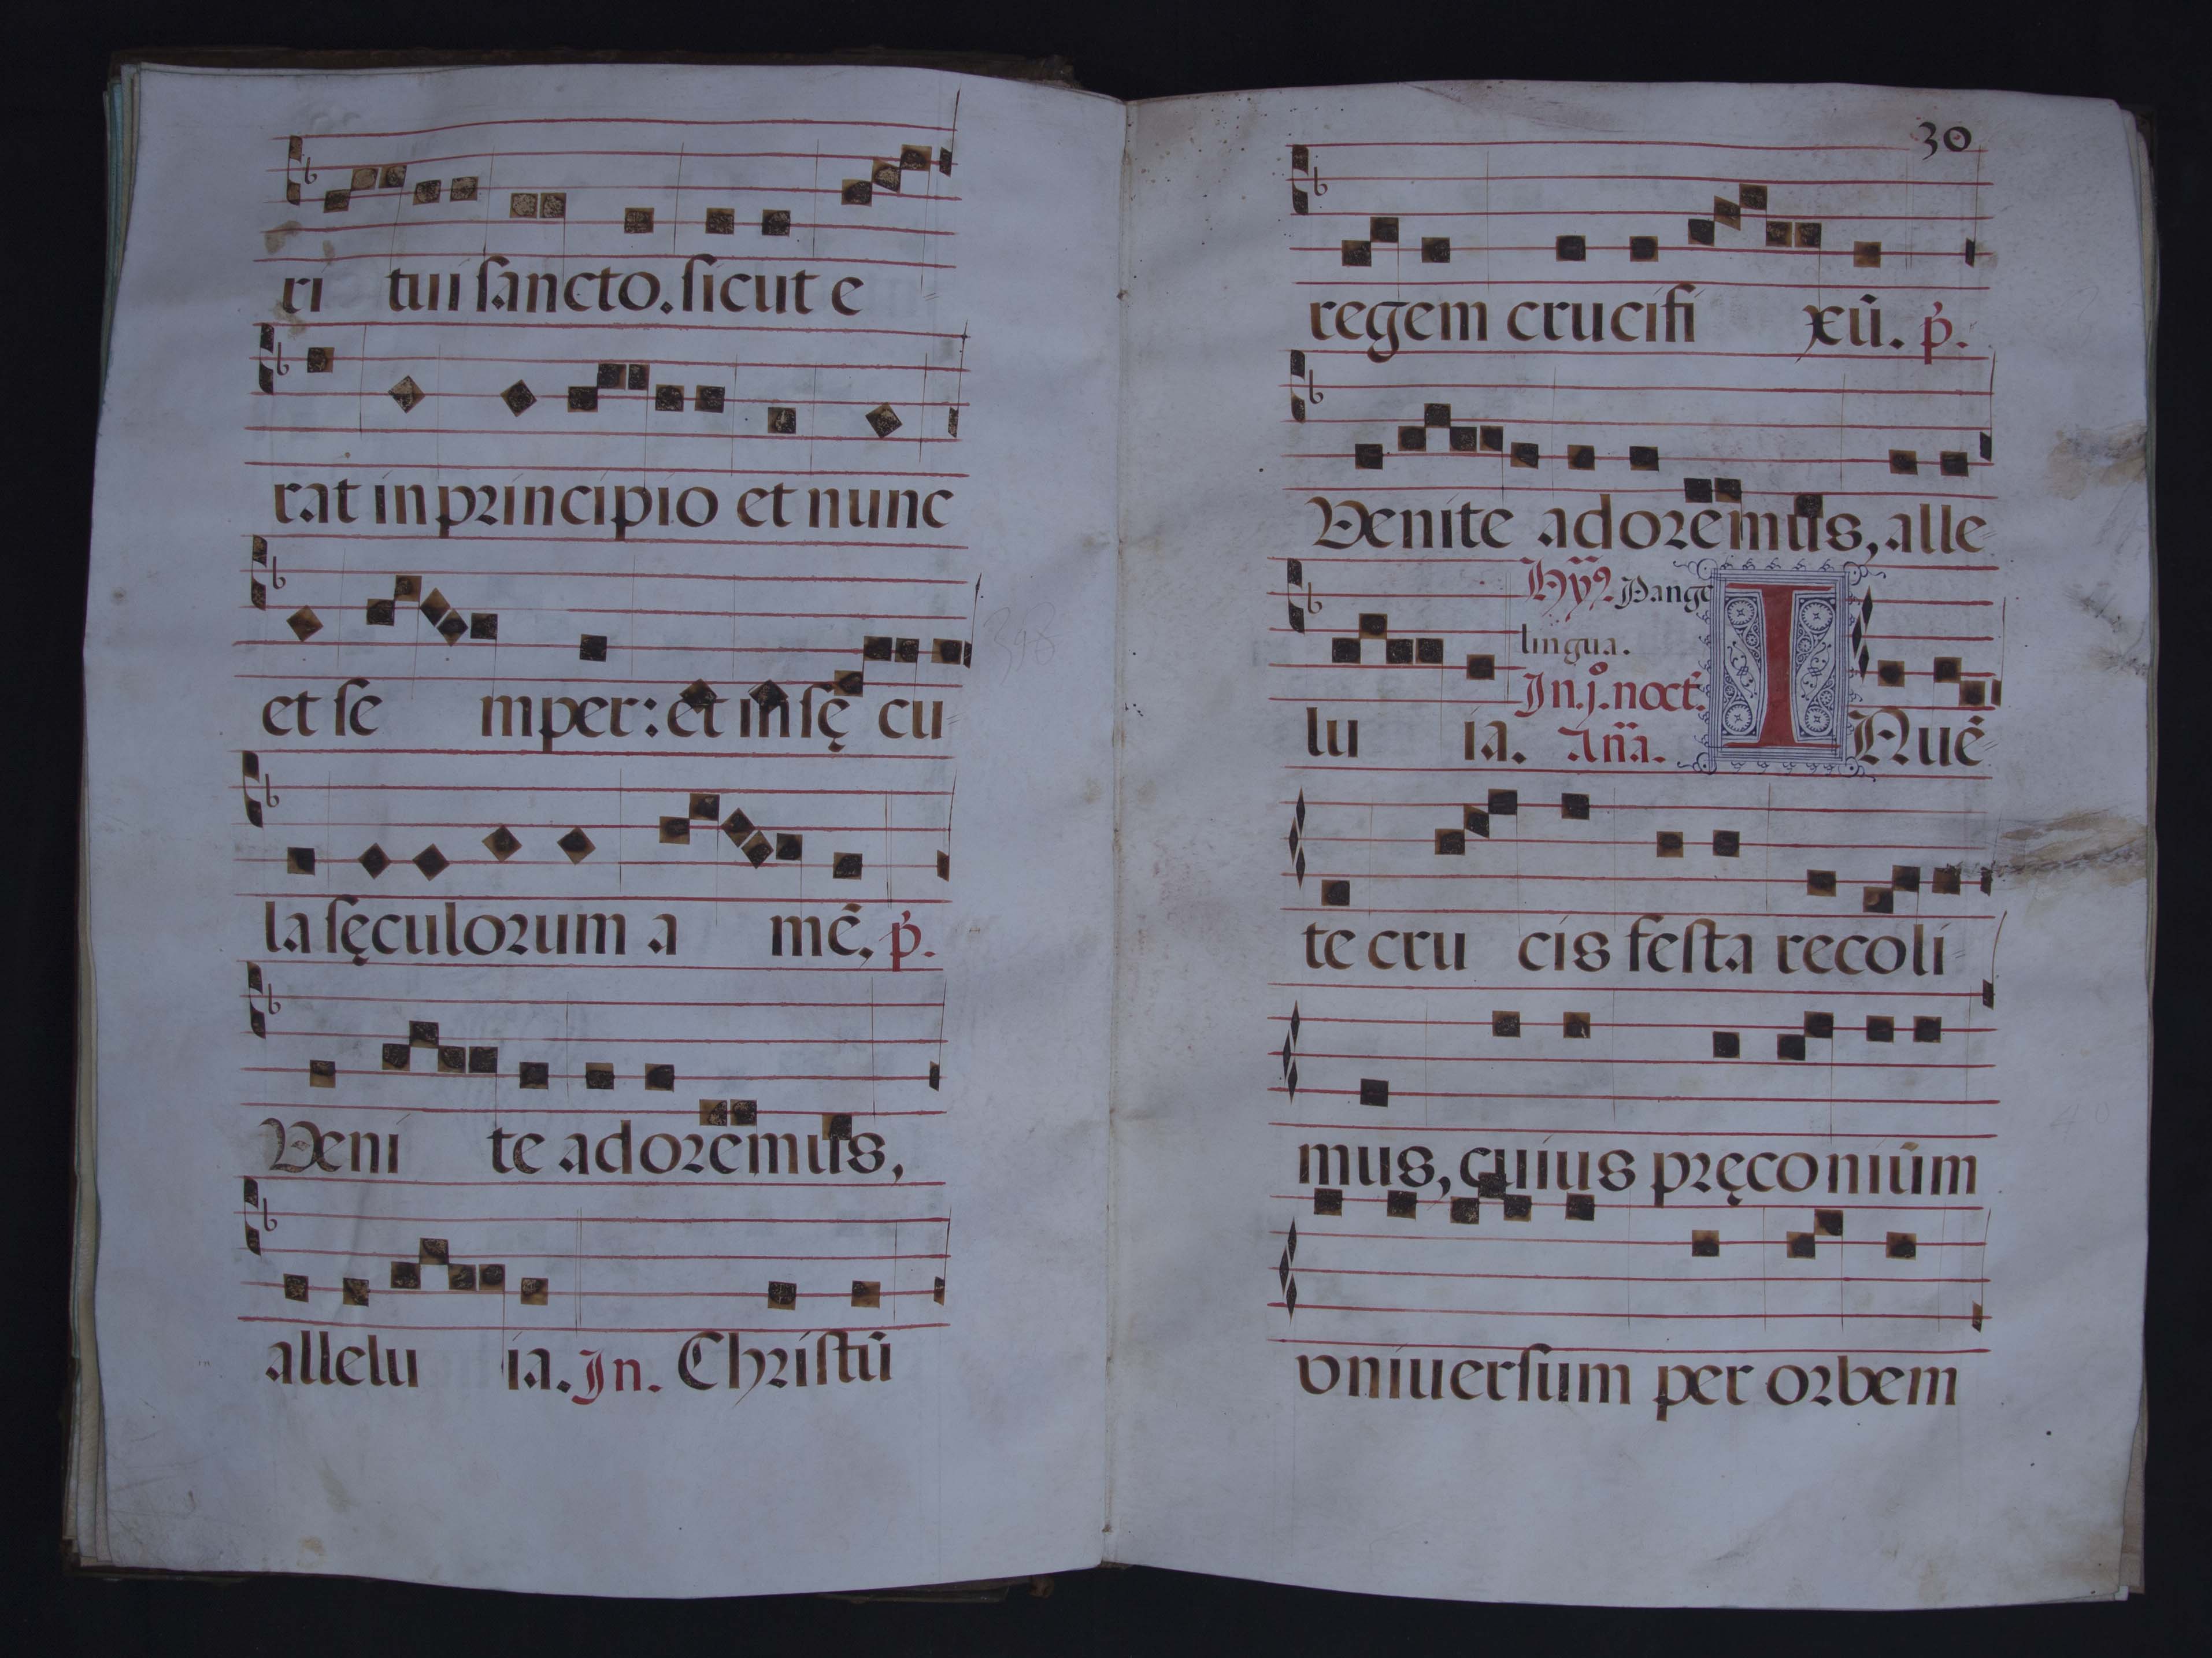 ri tui ſancto. ſicut e
rat in principio et nunc
et ſe mper: et in ſę cu
la ſęculorum a mē, p̄.
Veni te adoremus,
allelu ia. In. Chriſtū
30
regem crucifi xū. p̄.
Venite adoremus, alle
Hȳ9 Pange
lingua.
In .j.º noct.
lu ia. Añā. INuē
te cru cis feſta recoli
mus, cuius pręconiūm
vniuerſum per orbem